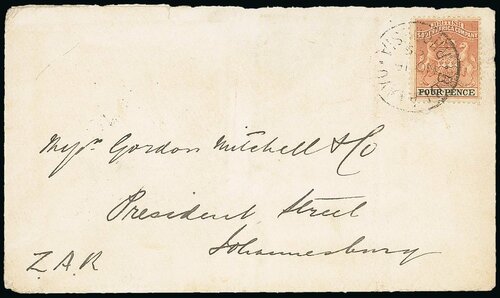 BRITISH
SOUTH AFRICA COMPANY
FOUR PENCE
Messrs Gordon Mitchell & Co
President Street
Johannesburg
Z.A.R